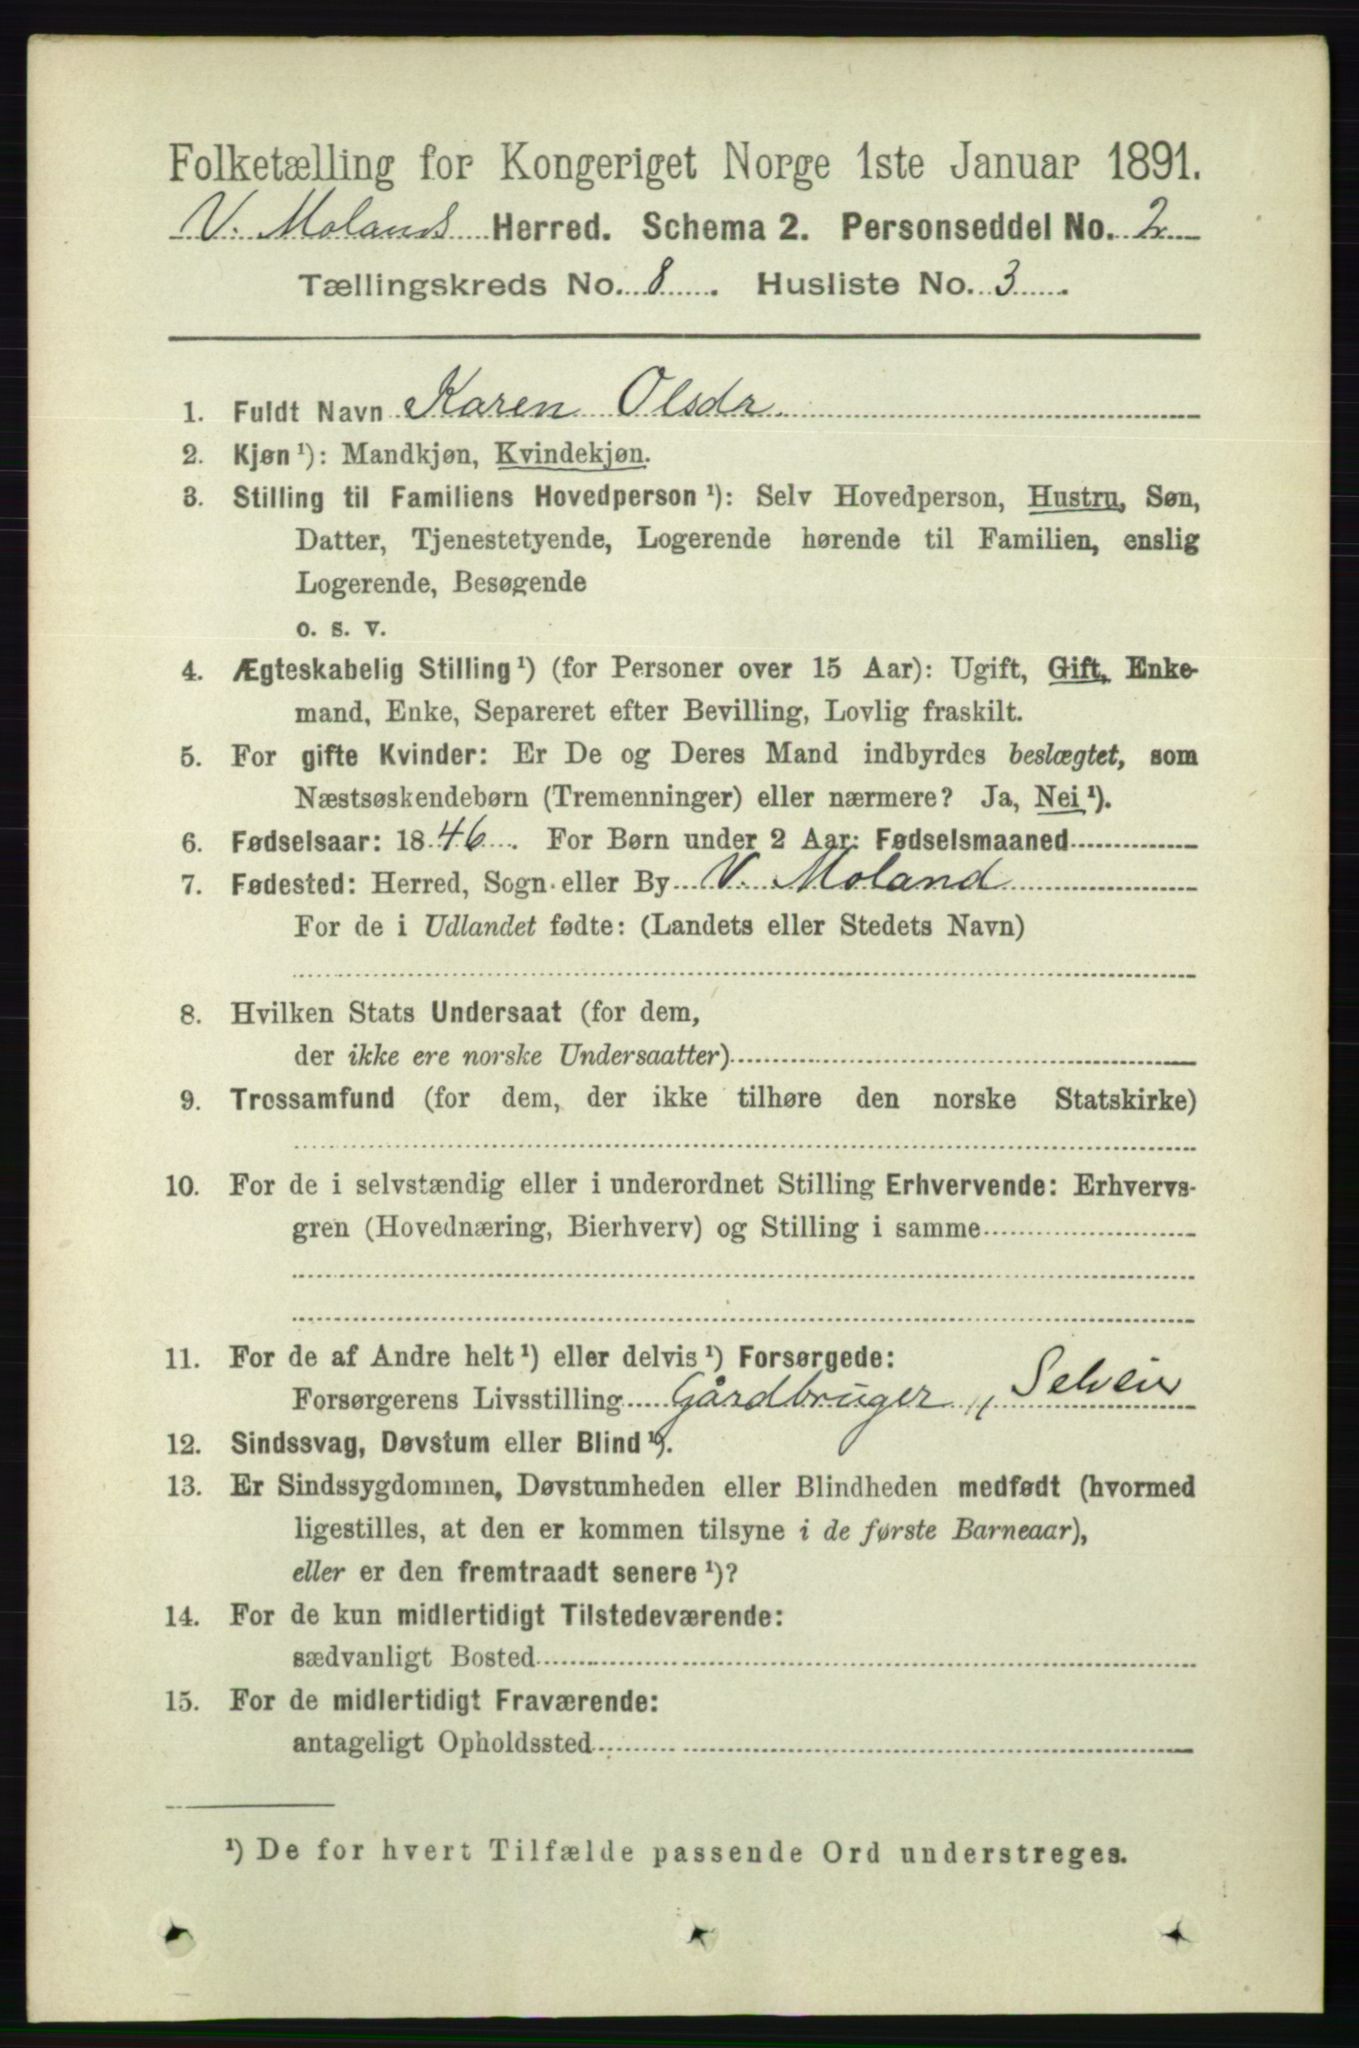 Folketælling for Kongeriget Norge 1ste Januar 1891.
V. Molands Herred. Schema 2. Personseddel No. 2
Tællingskreds No. 8. Husliste No. 3.
1. Fuldt Navn Karen Olsdr
2. Kjøn ¹): Mandkjøn, Kvindekjøn.
3. Stilling til Familiens Hovedperson ¹): Selv Hovedperson, Hustru, Søn,
Datter, Tjenestetyende, Logerende hørende til Familien, enslig
Logerende, Besøgende
o. s. v.
4. Ægteskabelig Stilling ¹) (for Personer over 15 Aar): Ugift, Gift, Enke-
mand, Enke, Separeret efter Bevilling, Lovlig fraskilt.
5. For gifte Kvinder: Er De og Deres Mand indbyrdes beslægtet, som
Næstsøskendebørn (Tremenninger) eller nærmere? Ja, Nei ¹).
6. Fødselsaar: 1846. For Børn under 2 Aar: Fødselsmaaned
7. Fødested: Herred, Sogn eller By V. Moland
For de i Udlandet fødte: (Landets eller Stedets Navn)
8. Hvilken Stats Undersaat (for dem,
der ikke ere norske Undersaatter)
9. Trossamfund (for dem, der ikke tilhøre den norske Statskirke)
10. For de i selvstændig eller i underordnet Stilling Erhvervende: Erhvervs-
gren (Hovednæring, Bierhverv) og Stilling i samme
11. For de af Andre helt ¹) eller delvis ¹) Forsørgede:
Forsørgerens Livsstilling Gårdbruger, Selveier
12. Sindssvag, Døvstum eller Blind ¹).
13. Er Sindssygdommen, Døvstumheden eller Blindheden medfødt (hvormed
ligestilles, at den er kommen tilsyne i de første Barneaar),
eller er den fremtraadt senere ¹)?
14. For de kun midlertidigt Tilstedeværende:
sædvanligt Bosted
15. For de midlertidigt Fraværende:
antageligt Opholdssted
¹) De for hvert Tilfælde passende Ord understreges.